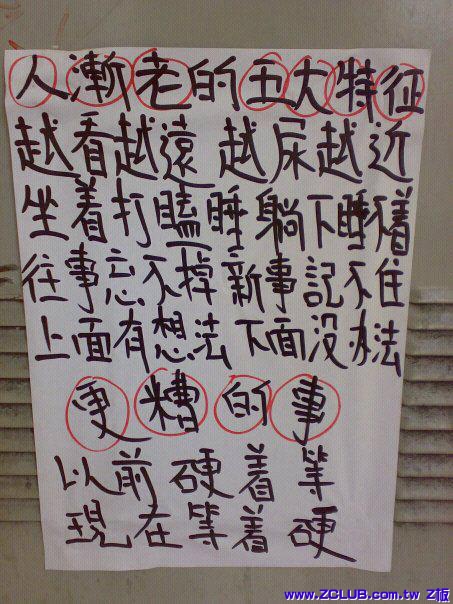 人漸老的五大特征
越看越遠 越尿越近
坐着打瞌睡 躺下睡不着
往事忘不掉 新事記不住
上面有想法 下面没办法
更糟的事
以前硬着等
現在等着硬
www.ZCLUB.com.tw Z板